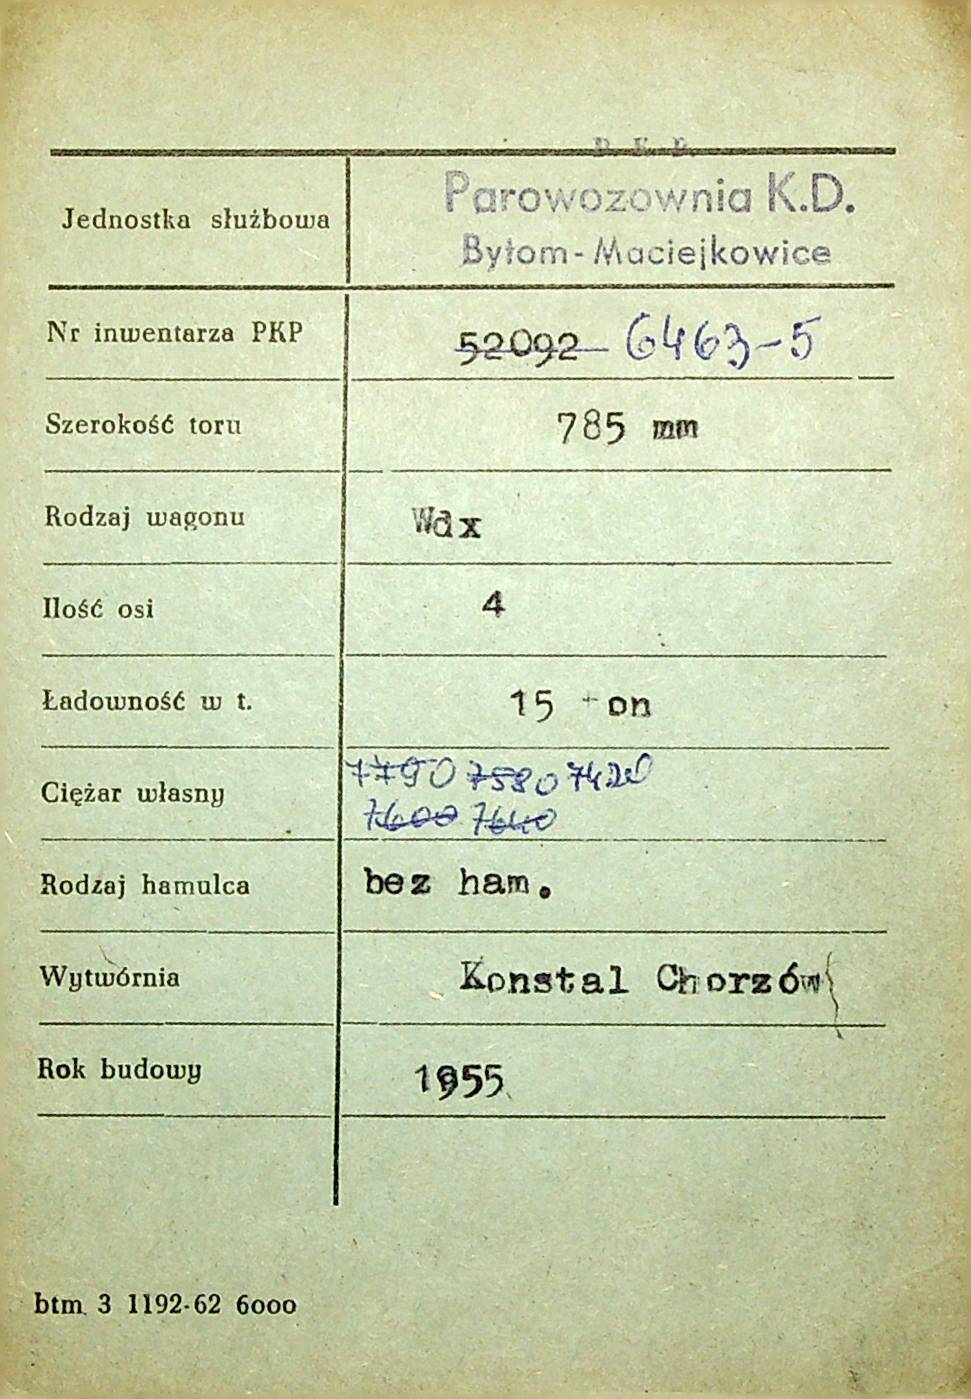 P. K. P.
Parowozownia K.D.
Jednostka służbowa
Bytom-Maciejkowice
Nr inwentarza PKP 52092 6463-5
Szerokość toru 785 mm
Rodzaj wagonu Wdx
Ilość osi 4
Ładowność w t. 15 ton
7790 7580 7420
Ciężar własny
7600 7640
Rodzaj hamulca bez ham.
Wytwórnia Konstal Chorzów
Rok budowy 1955
btm. 3 1192-62 6000